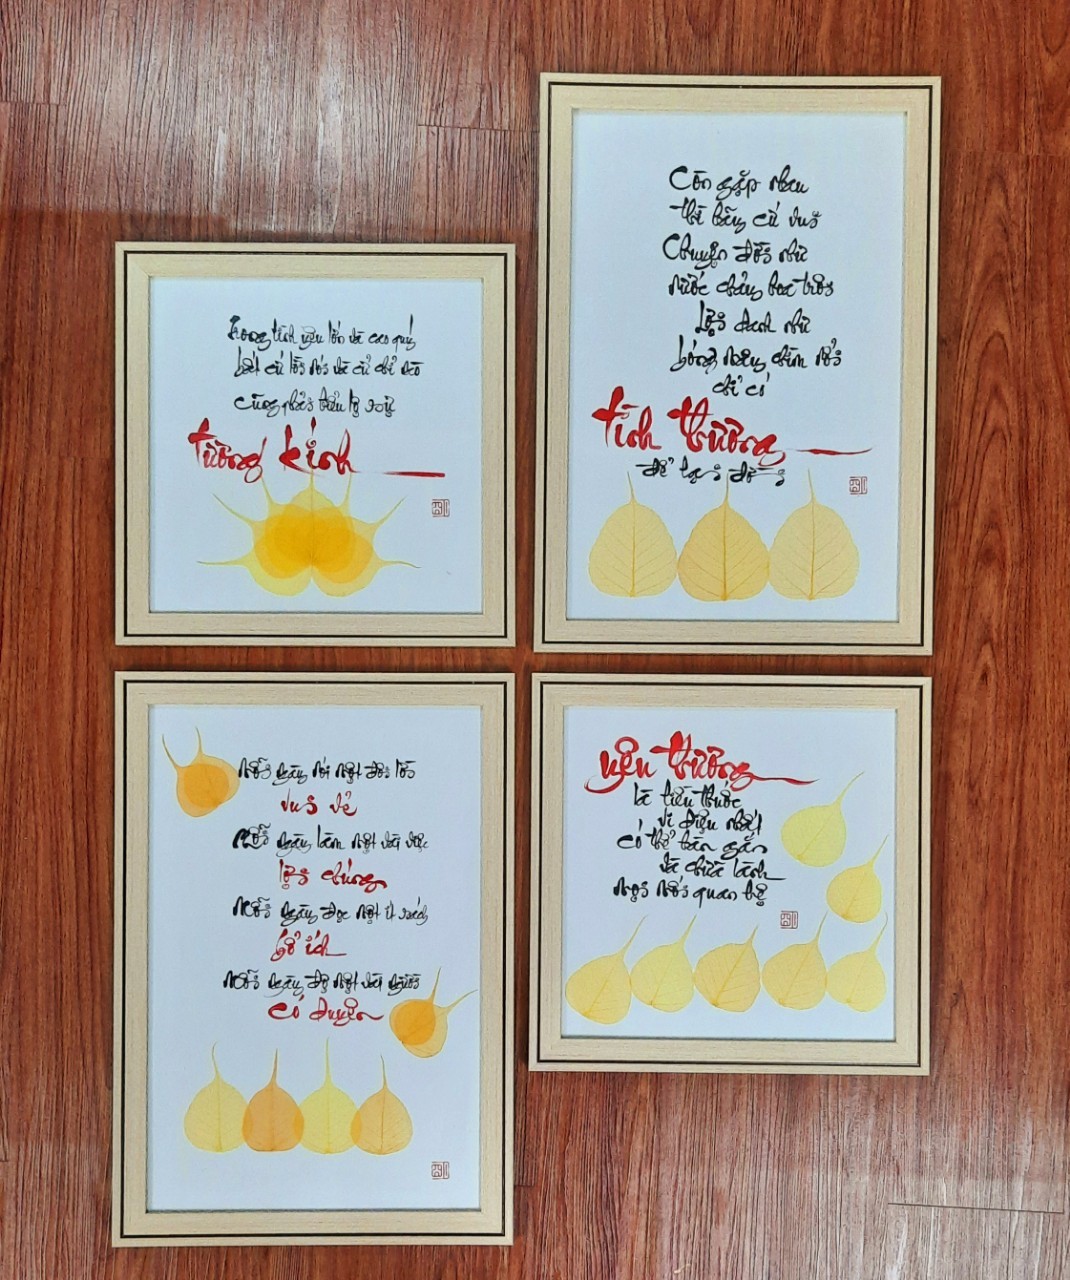 Trong tình yêu lớn và cao quý
bất cứ lời nói và cử chỉ nào
cũng phải biểu lộ sự
tương kính
Còn gặp nhau
thì hãy cứ vui
Chuyện đời như
nước chảy hoa trôi
Lợi danh như
bóng mây chìm nổi
chỉ có
tình thương
để lại đời
Mỗi ngày nói một đôi lời
vui vẻ
Mỗi ngày làm một vài việc
lợi chúng
Mỗi ngày đọc một ít sách
bổ ích
Mỗi ngày độ một vài người
có duyên
yêu thương
là tiên thược
vi diệu nhất
có thể hàn gắn
và chữa lành
mọi mối quan hệ